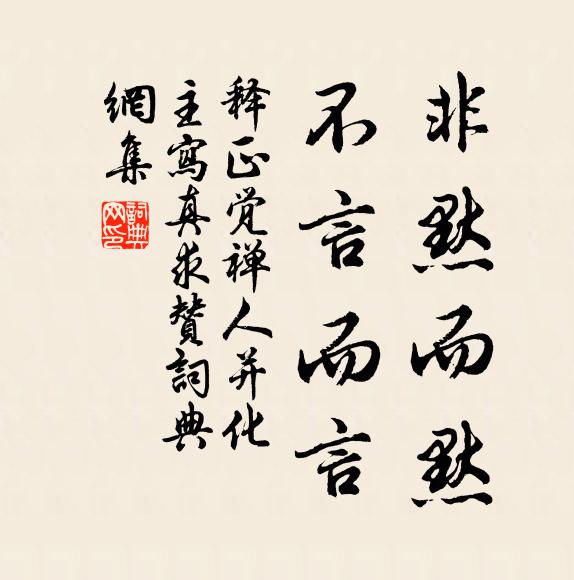 非默而默
不言而言
释正觉禅人并化
主寫真求贊詞典
網集
詞典
网印